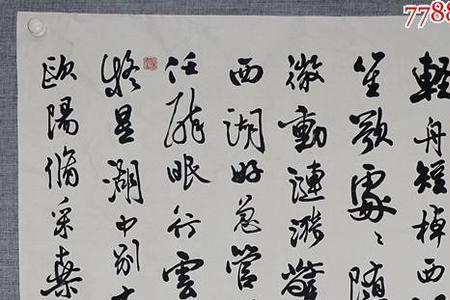 7788
輕舟短棹西
笙歌處〻隨
微動漣漪驚
西湖好急管
任醉眠行雲
疑是湖中別有
歐陽脩采桑